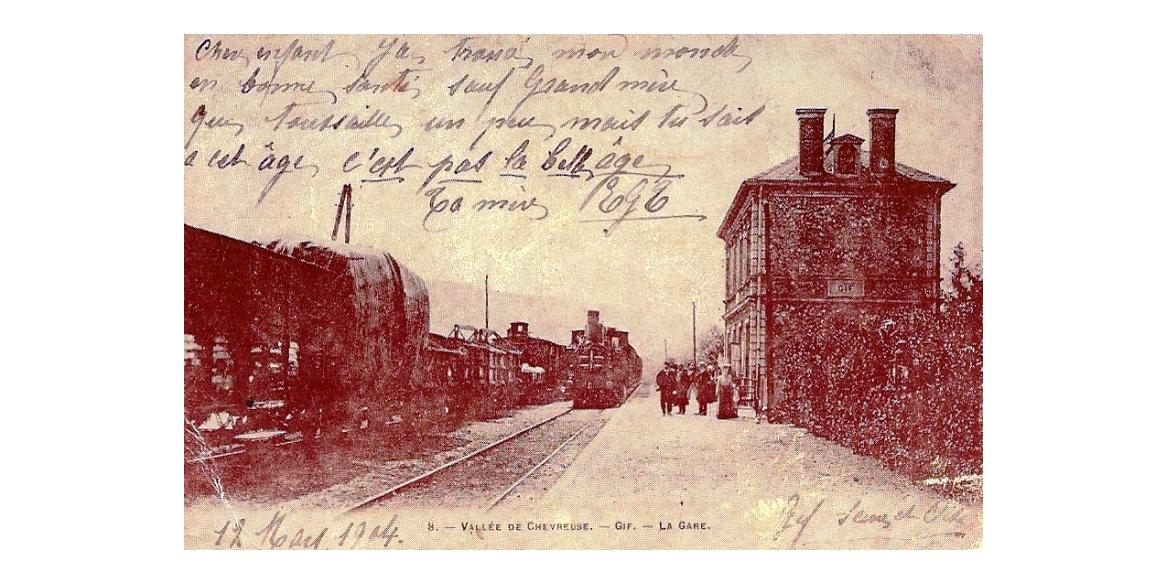 Cher enfant J'ai trouvé mon monde
en bonne santé, sauf Grand mère
que toussaille un peu, mait tu sait
a cet âge, c'est pas la bell âge
Ta mère EGE
GIF
8. — VALLÉE DE CHEVREUSE. — GIF. — LA GARE.
12 Mars 1904.
Gif Seine et Oise